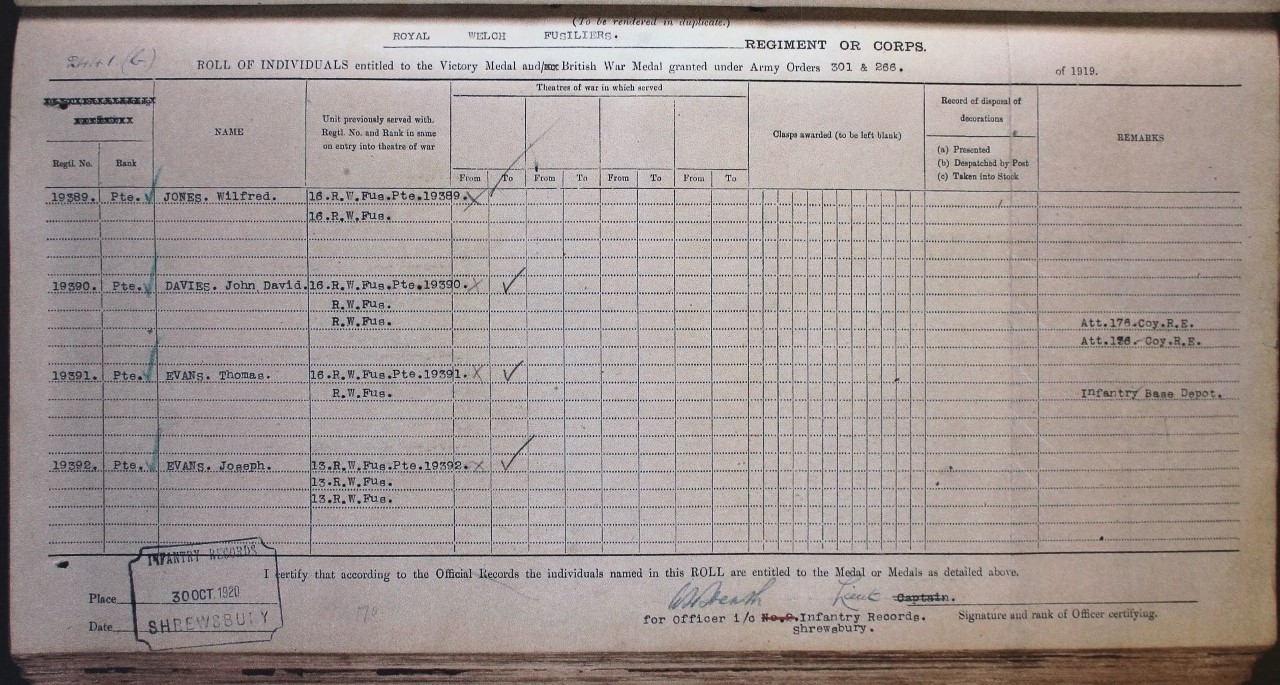 (To be rendered in duplicate.)
ROYAL WELCH FUSILIERS. REGIMENT OR CORPS.
2441 (G)
ROLL OF INDIVIDUALS entitled to the Victory Medal and/ British War Medal granted under Army Orders 301 & 266. of 1919.
Theatres of war in which served
Regtl. No. Rank
NAME
Unit previously served with.
Regtl. No. and Rank in same
on entry into theatre of war
From To From To From To From To
Clasps awarded (to be left blank)
Record of disposal of
decorations
(a) Presented
(b) Despatched by Post
(c) Taken into Stock
REMARKS
19389. Pte. JONES. Wilfred. 16.R.W.Fus.Pte.19389.
16.R.W.Fus.
19390. Pte. DAVIES. John David. 16.R.W.Fus.Pte.19390.
R.W.Fus.
R.W.Fus. Att.176.Coy.R.E.
Att. Coy.R.E.
19391. Pte. EVANS. Thomas. 16.R.W.Fus.Pte.19391.
R.W.Fus. Infantry Base Depot.
19392. Pte. EVANS. Joseph. 13.R.W.Fus.Pte.19392.
13.R.W.Fus.
13.R.W.Fus.
I certify that according to the Official Records the individuals named in this ROLL are entitled to the Medal or Medals as detailed above.
Place
Date
INFANTRY RECORDS
30 OCT. 1920
SHREWSBURY
Lieut Captain.
for Officer i/c No.2.Infantry Records. Signature and rank of Officer certifying.
Shrewsbury.